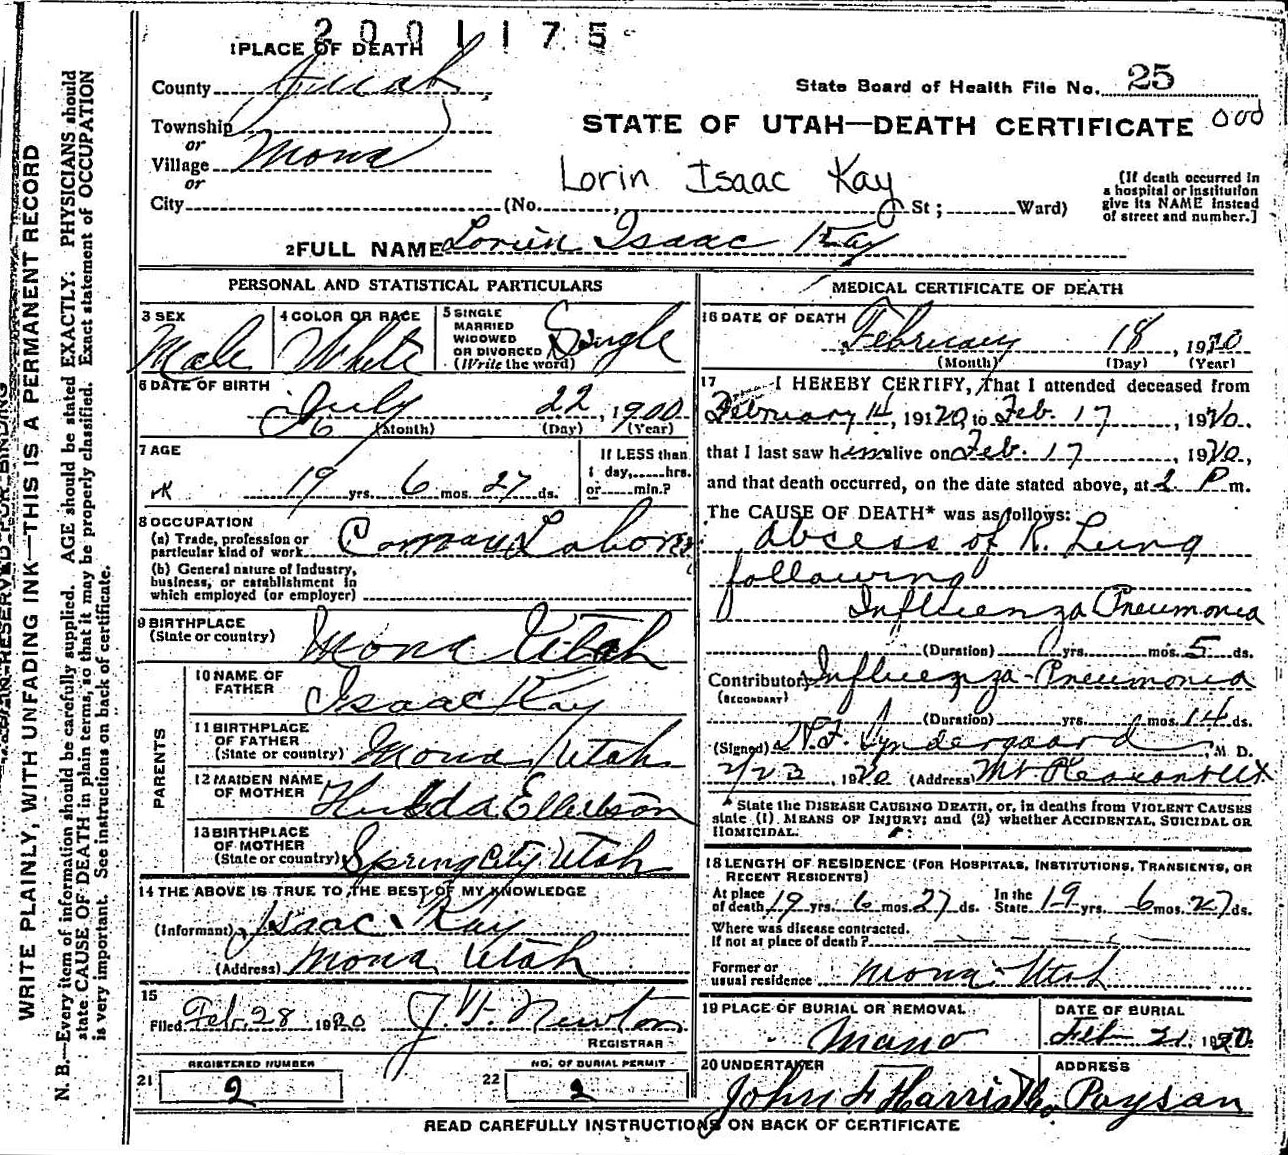 2001175
1 PLACE OF DEATH
County Juab
State Board of Health File No. 25
Township
or
Village Mona
or
City (No. , St; Ward)
STATE OF UTAH—DEATH CERTIFICATE
Lorin Isaac Kay
(If death occurred in
a hospital or institution
give its NAME instead
of street and number.]
2 FULL NAME Lorin Isaac Kay
WRITE PLAINLY, WITH UNFADING INK—THIS IS A PERMANENT RECORD
N. B.—Every item of information should be carefully supplied. AGE should be stated EXACTLY. PHYSICIANS should
state CAUSE OF DEATH in plain terms, so that it may be properly classified. Exact statement of OCCUPATION
is very important. See instructions on back of certificate.
PERSONAL AND STATISTICAL PARTICULARS
3 SEX
Male
4 COLOR OR RACE
White
5 SINGLE
MARRIED
WIDOWED
OR DIVORCED
(Write the word)
Single
6 DATE OF BIRTH
July 22, 1900
(Month) (Day) (Year)
7 AGE
19 yrs. 6 mos. 27 ds.
If LESS than
1 day,......hrs.
or......min.?
8 OCCUPATION
(a) Trade, profession or
particular kind of work
(b) General nature of Industry,
business, or establishment in
which employed (or employer)
9 BIRTHPLACE
(State or country) Mona Utah
PARENTS
10 NAME OF
FATHER Isaac Kay
11 BIRTHPLACE
OF FATHER
(State or country) Mona Utah
12 MAIDEN NAME
OF MOTHER
13 BIRTHPLACE
OF MOTHER
(State or country) Spring City Utah
14 THE ABOVE IS TRUE TO THE BEST OF MY KNOWLEDGE
(Informant) Isaac Kay
(Address) Mona Utah
15
Filed Feb. 28 1920 J. H. Newton
REGISTRAR
21
REGISTERED NUMBER
2
22
NO. OF BURIAL PERMIT
2
MEDICAL CERTIFICATE OF DEATH
16 DATE OF DEATH
February 18, 1920
(Month) (Day) (Year)
17 I HEREBY CERTIFY, That I attended deceased from
February 14, 1920, to Feb. 17, 1920,
that I last saw him alive on Feb. 17, 1920,
and that death occurred, on the date stated above, at 2 P m.
The CAUSE OF DEATH* was as follows:
Abcess of R. Lung
following
Influenza Pneumonia
(Duration) yrs. mos. 5 ds.
Contributory Influenza-Pneumonia
(SECONDARY)
(Duration) yrs. mos. 14 ds.
(Signed) M D.
1920 (Address) Mt. Pleasant Ut
* State the DISEASE CAUSING DEATH, or, in deaths from VIOLENT CAUSES
state (1) MEANS OF INJURY; and (2) whether ACCIDENTAL, SUICIDAL OR
HOMICIDAL.
18 LENGTH OF RESIDENCE (FOR HOSPITALS, INSTITUTIONS, TRANSIENTS, OR
RECENT RESIDENTS)
At place
of death 19 yrs. 6 mos. 27 ds.
In the
State 19 yrs. 6 mos. 27 ds.
Where was disease contracted.
if not at place of death?
Former or
usual residence Mona Utah
19 PLACE OF BURIAL OR REMOVAL
Mona
DATE OF BURIAL
Feb 21, 1920
20 UNDERTAKER
John F Harris
ADDRESS
Paysan
READ CAREFULLY INSTRUCTIONS ON BACK OF CERTIFICATE